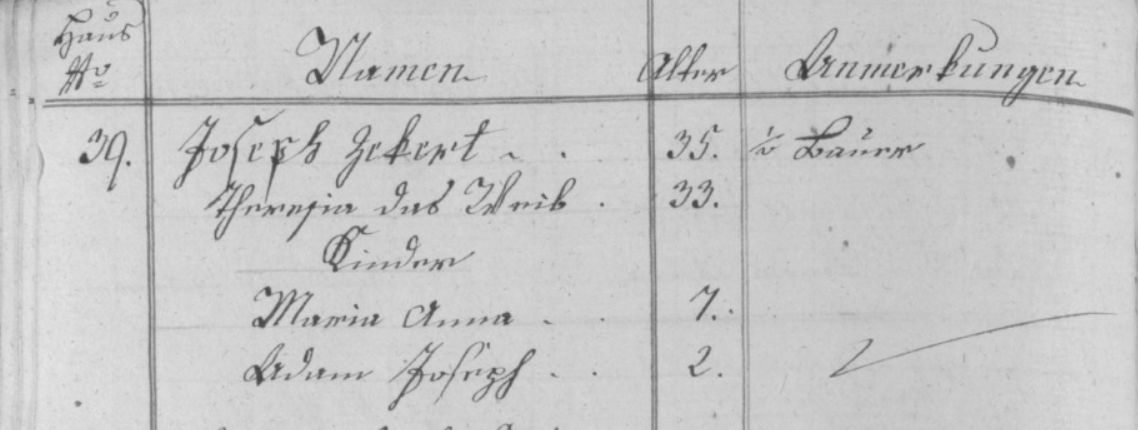 Haus
No Namen Alter Anmerkungen
39. Joseph Zekert . . 35. 1/2 Bauer
Theresia das Weib . 33.
Kinder
Maria Anna . . 7.
Adam Joseph . . 2.